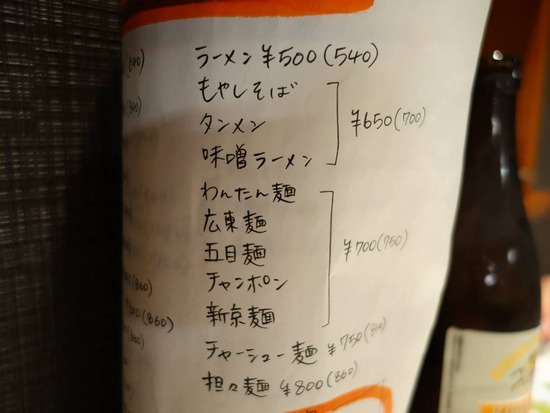 ラーメン ¥500(540)
もやしそば
タンメン
味噌ラーメン
¥650(700)
わんたん麺
広東麺
五目麺
チャンポン
新京麺
¥700(750)
チャーシュー麺 ¥750(810)
担々麺 ¥800(860)